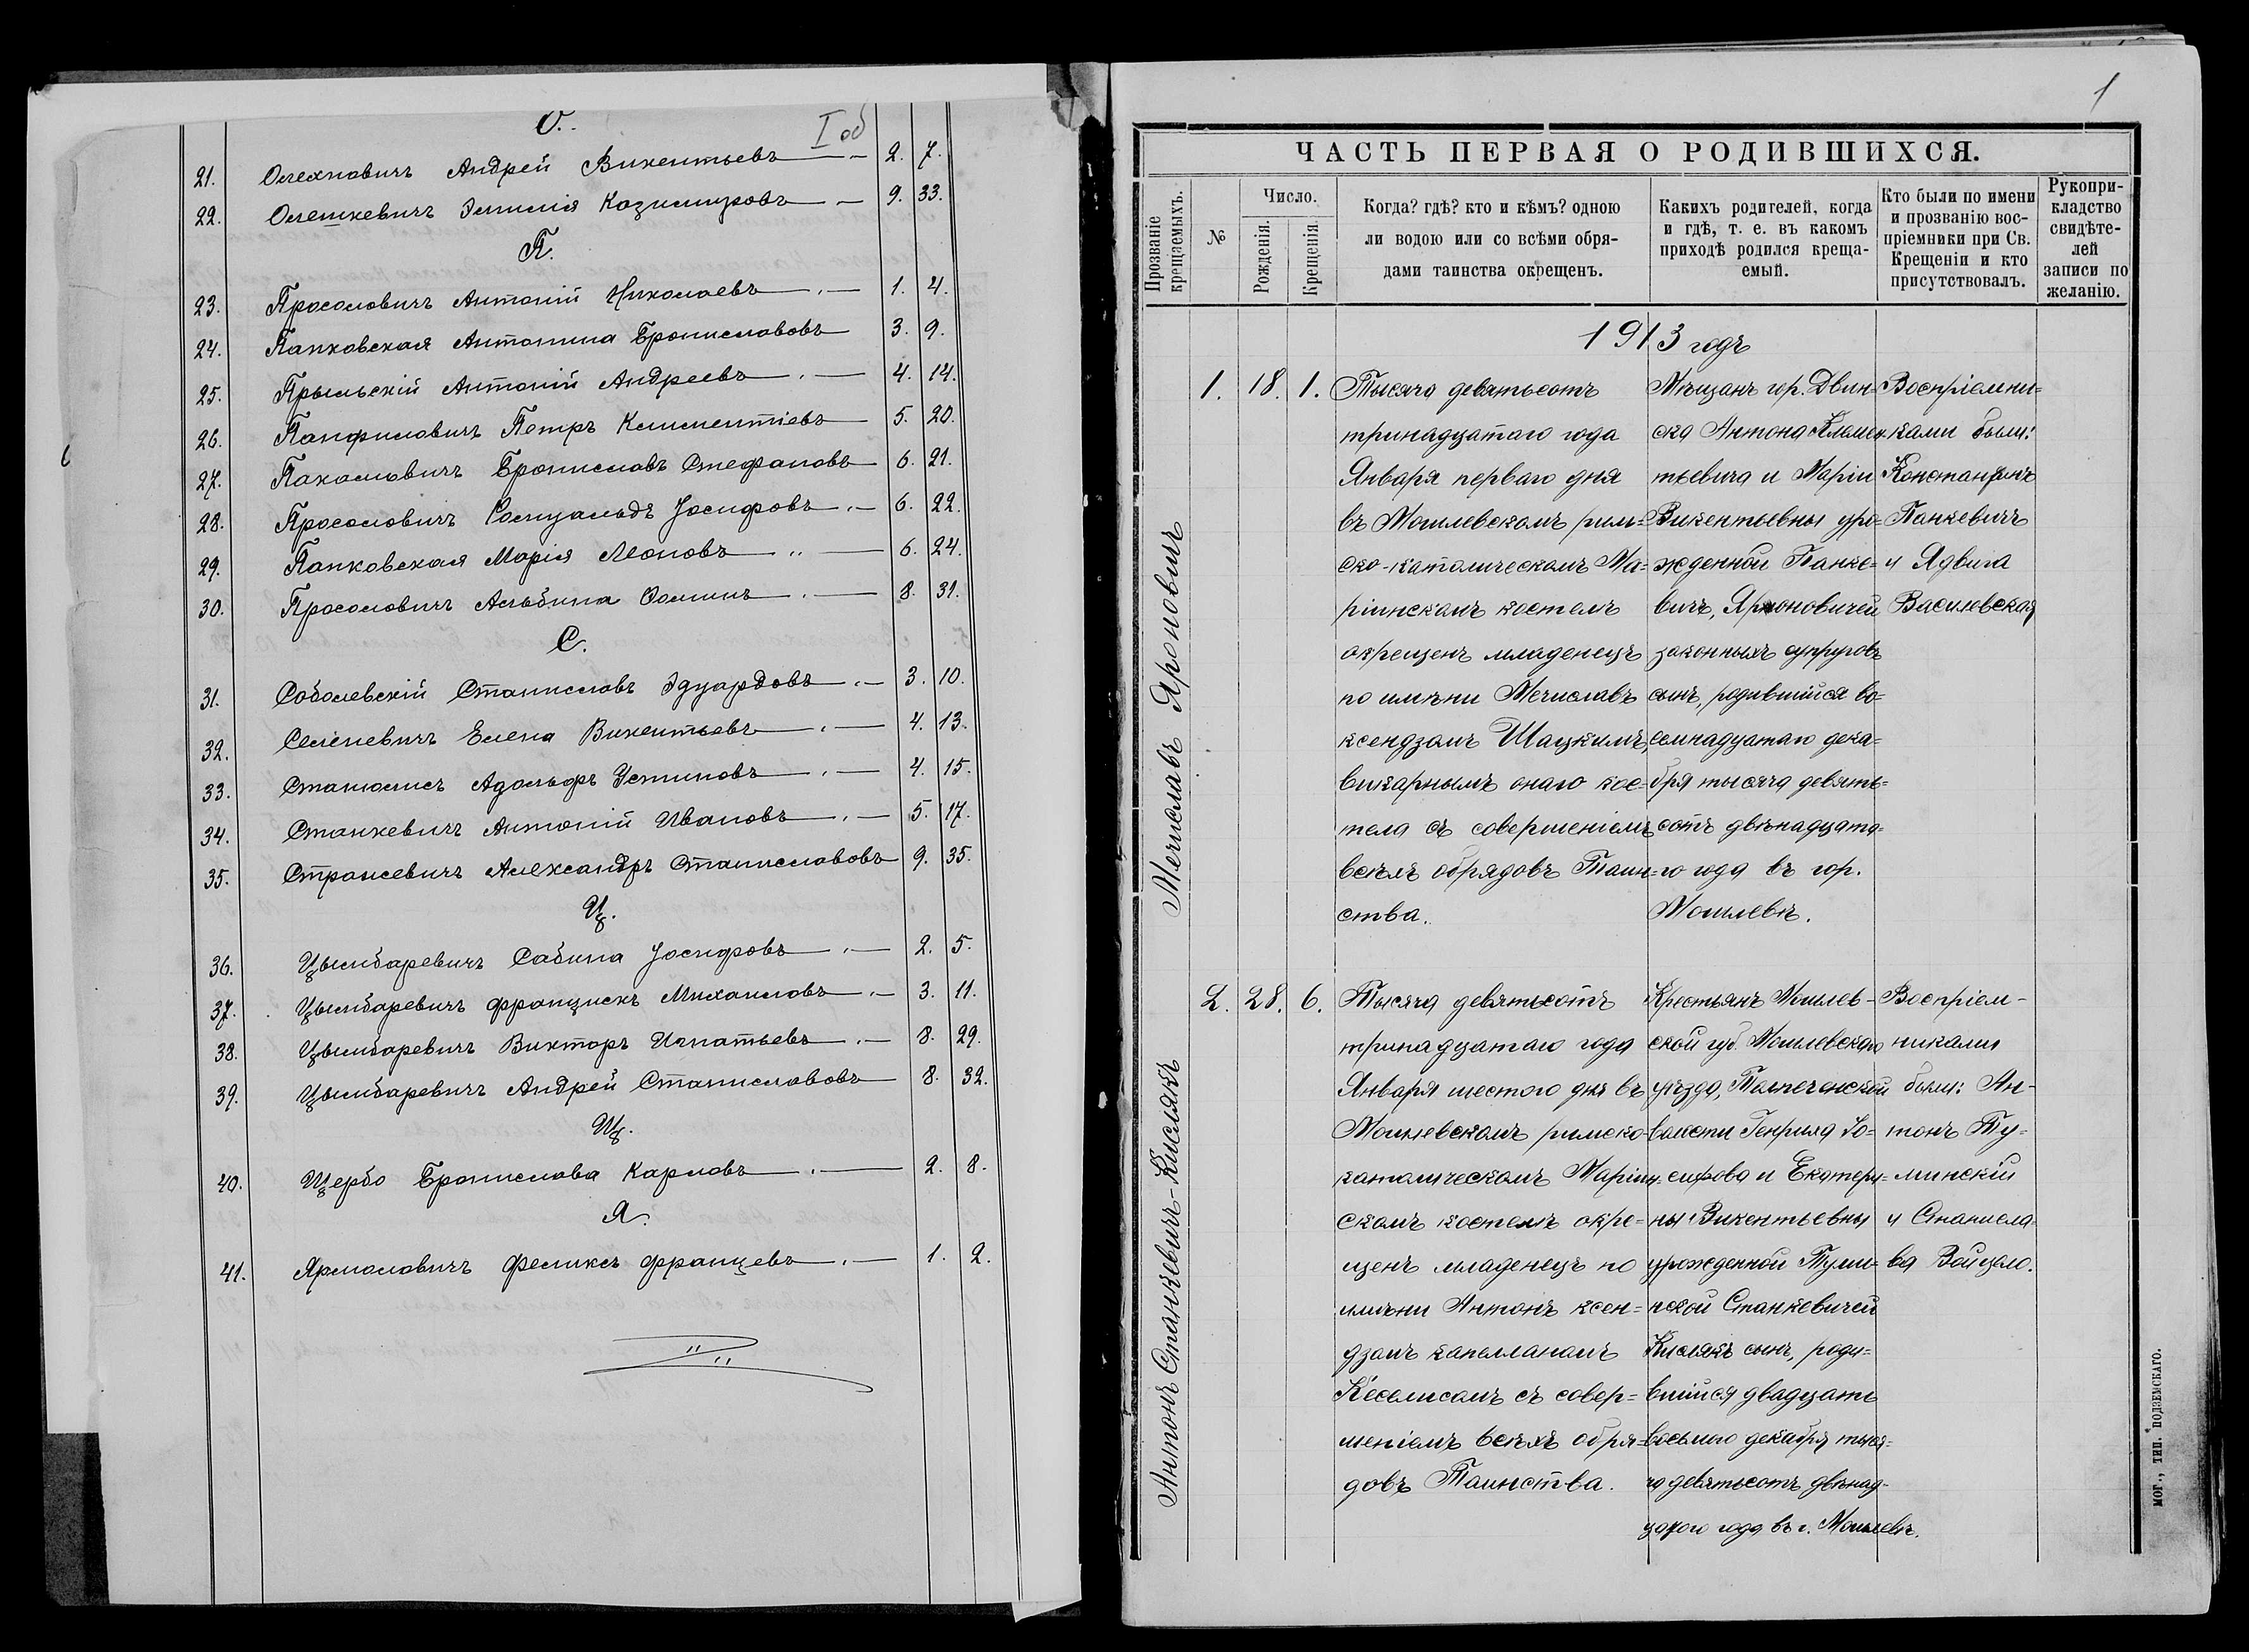 О.
I об
21. Олехновичъ Андрей Викентьевъ 2. 7.
22. Олешкевичъ Эмилія Казимировъ 9. 33.
П.
23. Просоловичъ Антоній Николаевъ 1. 4.
24. Папковская Антонина Брониславовъ 3. 9.
25. Прыльскій Антоній Андреевъ 4. 14.
26. Панфиловичъ Петръ Климентіевъ 5. 20.
27. Пахоловичъ Брониславъ Стефановъ 6. 21.
28. Просоловичъ Ромуальдъ Іосифовъ 6. 22.
29. Папковская Марія Леоновъ 6. 24.
30. Просоловичъ Альбина Фоминъ 8. 31.
С.
31. Соболевскій Станиславъ Эдуардовъ 3. 10.
32. Селеневичъ Елена Викентьевъ 4. 13.
33. Станюлисъ Адольфъ Устиновъ 4. 15.
34. Станкевичъ Антоній Ивановъ 5. 17.
35. Александръ Станиславовъ 9. 35.
Ц.
36. Цымбаревичъ Сабина Іосифовъ 2. 5.
37. Цымбаревичъ Францискъ Михаиловъ 3. 11.
38. Цымбаревичъ Викторъ Игнатьевъ 8. 29.
39. Цымбаревичъ Андрей Станиславовъ 8. 32.
Щ.
40. Щербо Бронислава Карловъ 2. 8.
Я.
41. Ярмоловичъ Феликсъ Францевъ 1. 2.
1
ЧАСТЬ ПЕРВАЯ О РОДИВШИХСЯ.
Прозваніе крещаемыхъ.
№
Число.
Рожденія.
Крещенія.
Когда? гдѣ? кто и кѣмъ? одною
ли водою или со всѣми обря-
дами таинства окрещенъ.
Какихъ родителей, когда
и гдѣ, т. е. въ какомъ
приходѣ родился креща-
емый.
Кто были по имени
и прозванію вос-
пріемники при Св.
Крещеніи и кто
присутствовалъ.
Рукопри-
кладство
свидѣте-
лей
записи по
желанію.
1913 годъ
Мечиславъ Яроновичъ
1. 18. 1.
Тысяча девятьсотъ
тринадцатаго года
Января перваго дня
въ Могилевскомъ рим-
ско-католическомъ Ма-
ріинскомъ костелѣ
окрещенъ младенецъ
по имени Мечиславъ
ксендзомъ Шацкимъ,
викарнымъ онаго кос-
тела съ совершеніемъ
всѣхъ обрядовъ Таин-
ства.
Мѣщанъ гор. Двин-
ска Антона Клемен-
тьевича и Маріи
Викентьевны уро-
жденной Панке-
вичъ, Яроновичей
законныхъ супруговъ
сынъ, родившійся во-
семнадцатаго дека-
бря тысяча девять-
сотъ двѣнадцата-
го года въ гор.
Могилевѣ.
Воспріемни-
ками были:
Константинъ
Панкевичъ
и Ядвига
Василевская
Антонъ Станкевичъ-Кислякъ
2. 28. 6.
Тысяча девятьсотъ
тринадцатаго года
Января шестого дня въ
Могилевскомъ римско-
католическомъ Маріин-
скомъ костелѣ окре-
щенъ младенецъ по
имени Антонъ ксен-
дзомъ капелланомъ
Кеселисомъ съ совер-
шеніемъ всѣхъ обря-
довъ Таинства.
Крестьянъ Могилев-
ской губ. Могилевскаго
уѣзда,
волости Генриха Іо-
сифова и Екатери-
ны Викентьевны
урожденной Тумин-
ской Станкевичей
Кислякъ сынъ, роди-
вшійся двадцать
восьмого декабря тыся-
ча девятьсотъ двѣнад-
цатого года въ г. Могилевѣ.
Воспріем-
никами
были: Ан-
тонъ Ту-
минскій
и Станисла-
ва Войцехо.
МОГ., ТИП. ПОДЗЕМСКАГО.